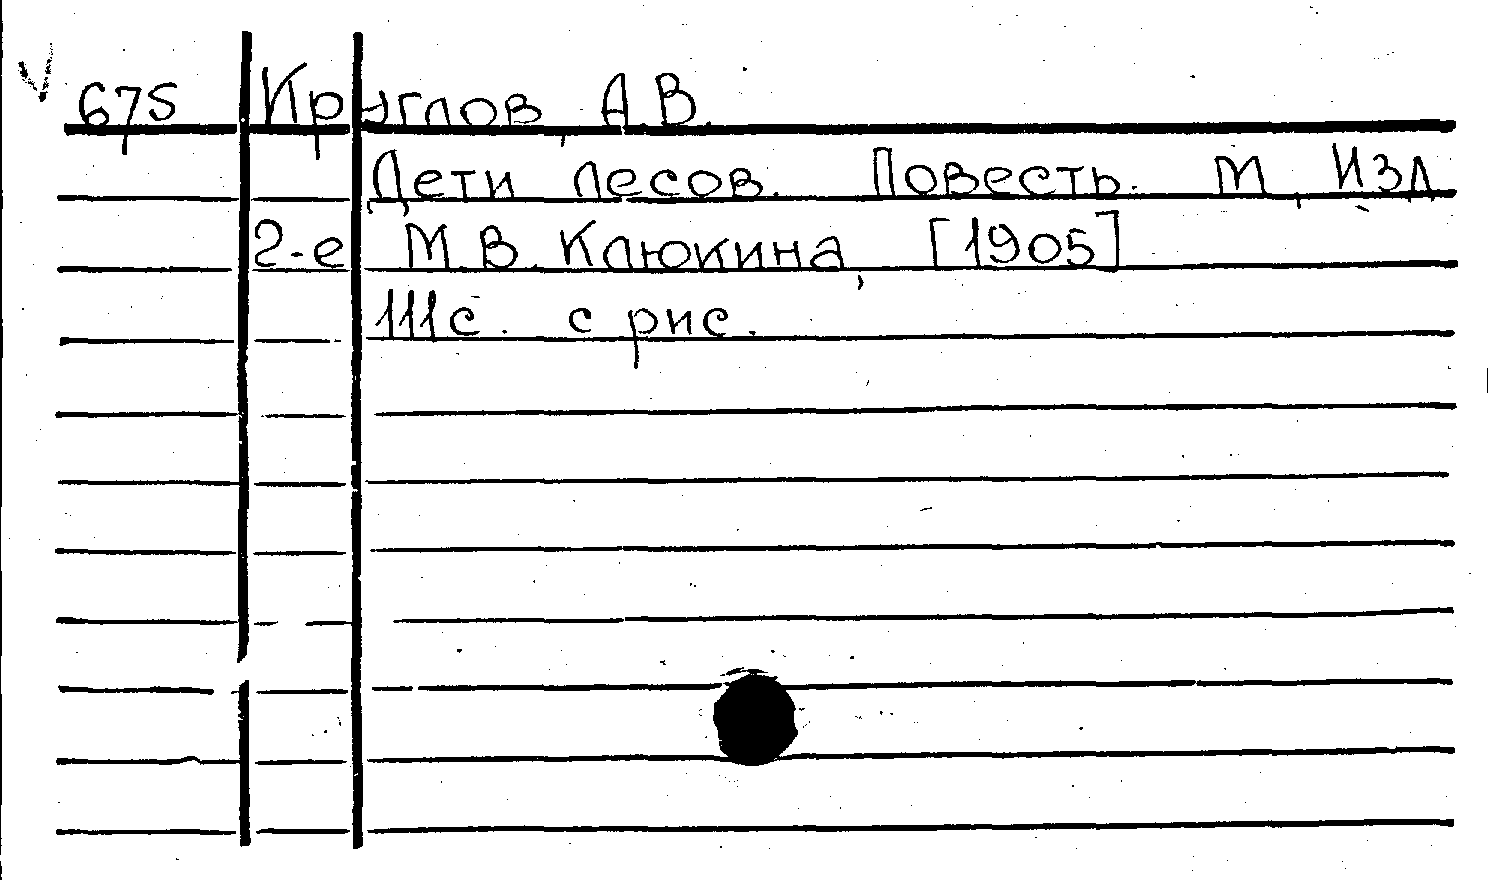 675 Круглов, А.В.
Дети лесов. Повесть. М., Изд.
2-е М.В. Клюкина, [1905]
111с. с рис.